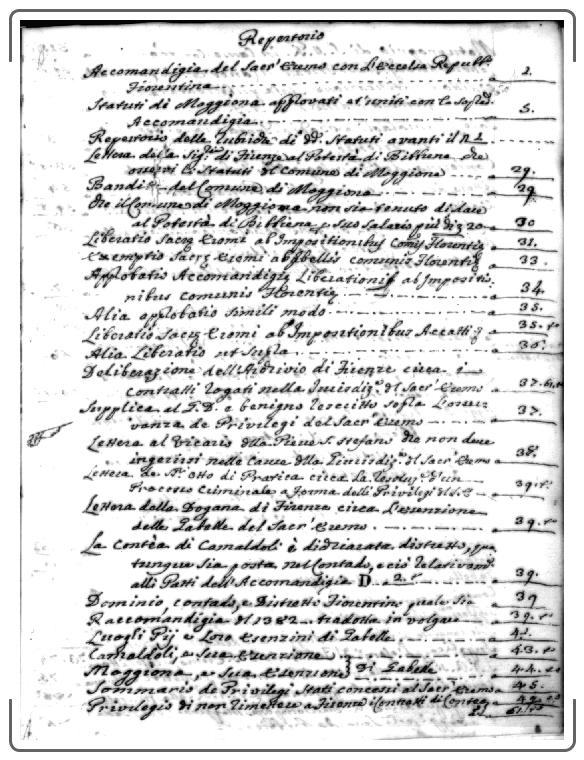 Repertorio
Accomandigia del Sacr' Eremo con L'Eccelsa Repubb.
Fiorentina 1.
Statuti di Moggiona approvati et uniti con la sopd.
Accomandigia 5.
Repertorio delle Rubriche di dd. Statuti avanti il n. 1
Lettera della Sig. di Firenze al Potestà di Bibbiena che
osservi li Statuti del Comune di Moggiona 29.
Bandi del Comune di Moggiona 29
Che il Comune di Moggiona non sia tenuto di dare
al Potestà di Bibbiena p suo salario più di 20 30
Liberatio Sacri Eremi ab Impositionibus Comis Florentie 31.
Exemptio Sacri Eremi a Gabellis comunis Florentie 33.
Approbatio Accomandigie Liberationis ab Impositio-
nibus comunis Florentie 34.
Alia approbatio simili modo 35.
Liberatio Sacri Eremi ab Impositionibus Accatti 35.
Alia Liberatio ut supra 36.
Deliberazione dell'Archivio di Firenze circa i
Contratti rogati nella Iurisdiz. del Sacr' Eremo 37.
Supplica al S. D. e benigno rescritto sopra l'osser-
vanza de Privilegi del Sacr' Eremo 37.
Lettera al Vicario della Pieve S. Stefano che non deve
ingerirsi nelle Cause della Giurisdiz. del Sacr' Eremo 38.
Lettera de SS. Otto di Pratica circa la d'un
Processo Criminale a forma delli Privilegi del S. E. 39.
Lettera della Dogana di Firenze circa l'esenzione
delle Gabelle del Sacr' Eremo 39.
La Contèa di Camaldoli è dichiarata distretto, qua
tunque sia posta nel Contado, e ciò relativam.
alli Patti dell'Accomandigia D 39.
Dominio, contado, e Distretto Fiorentino quale sia 39
Raccomandigia del 1382 tradotta in volgare 39.
Luoghi Pij e Loro esenzioni di Gabelle 42.
Camaldoli, e sua esenzione 43.
Moggiona, e sua esenzione } di Gabelle 44.
Sommario de Privilegi stati concessi al Sacr' Eremo 45.
Privilegio di non rimettere a Firenze i Contratti di Contea 49.
61.